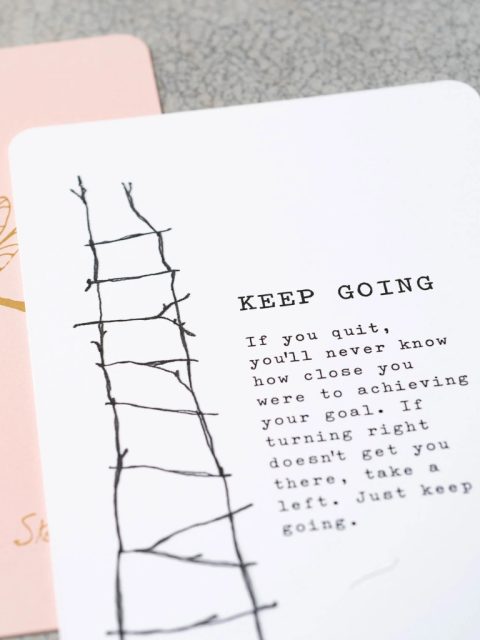 KEEP GOING
If you quit,
you'll never know
how close you
were to achieving
your goal. If
turning right
doesn't get you
there, take a
left. Just keep
going.